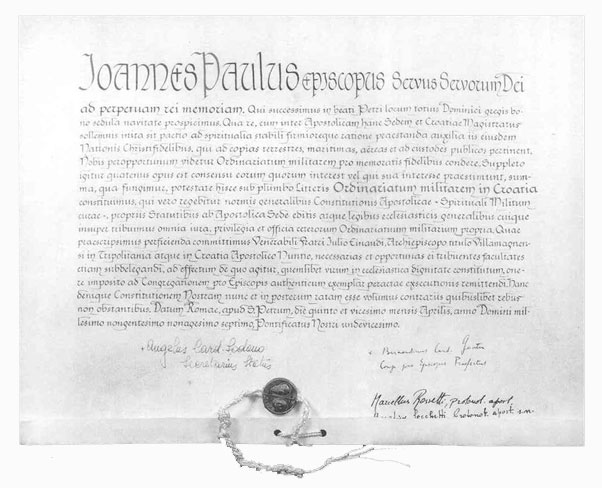 IOANNES PAULUS EPISCOPUS Servus Servorum Dei
ad perpetuam rei memoriam. Qui successimus in beati Petri locum totius Dominici gregis bo-
no sedula navitate prospicimus. Qua re, cum inter Apostolicam hanc Sedem et Croatiae Magistratus
sollemnis inita sit pactio ad spiritualia stabili firmioreque ratione praestanda auxilia iis eiusdem
Nationis Christifidelibus, qui ad copias terrestres, maritimas, aëreas et ad custodes publicos pertinent,
Nobis peropportunum videtur Ordinariatum militarem pro memoratis fidelibus condere. Suppleto
igitur quatenus opus est consensu eorum quorum interest vel qui sua interesse praesumunt, sum-
ma, qua fungimur, potestate hisce sub plumbo Litteris Ordinariatum militarem in Croatia
constituimus, qui vero regebitur normis generalibus Constitutionis Apostolicae «Spirituali Militum
curae», propriis Statutibus ab Apostolica Sede editis atque legibus ecclesiasticis generalibus cuique
insuper tribuimus omnia iura, privilegia et officia ceterorum Ordinariatuum militarium propria. Quae
praescripsimus perficienda committimus Venerabili Fratri Iulio Einaudi, Archiepiscopo titulo Villamagnen-
si in Tripolitania atque in Croatia Apostolico Nuntio, necessarias et opportunas ei tribuentes facultates
etiam subdelegandi, ad effectum de quo agitur, quemlibet virum in ecclesiastica dignitate constitutum, one-
re imposito ad Congregationem pro Episcopis authenticum exemplar peractae exsecutionis remittendi. Hanc
denique Constitutionem Nostram nunc et in posterum ratam esse volumus contrariis quibuslibet rebus
non obstantibus. Datum Romae, apud S. Petrum, die quinto et vicesimo mensis Aprilis, anno Domini mil-
lesimo nongentesimo nonagesimo septimo, Pontificatus Nostri undevicesimo.
+ Angelus Card. Sodano
Secretarius Status
+ Bernardinus Card. Gantin
Congr. pro Episcopis Praefectus
Marcellus Rossetti, protonot. apost.
protonot. apost. s.n.